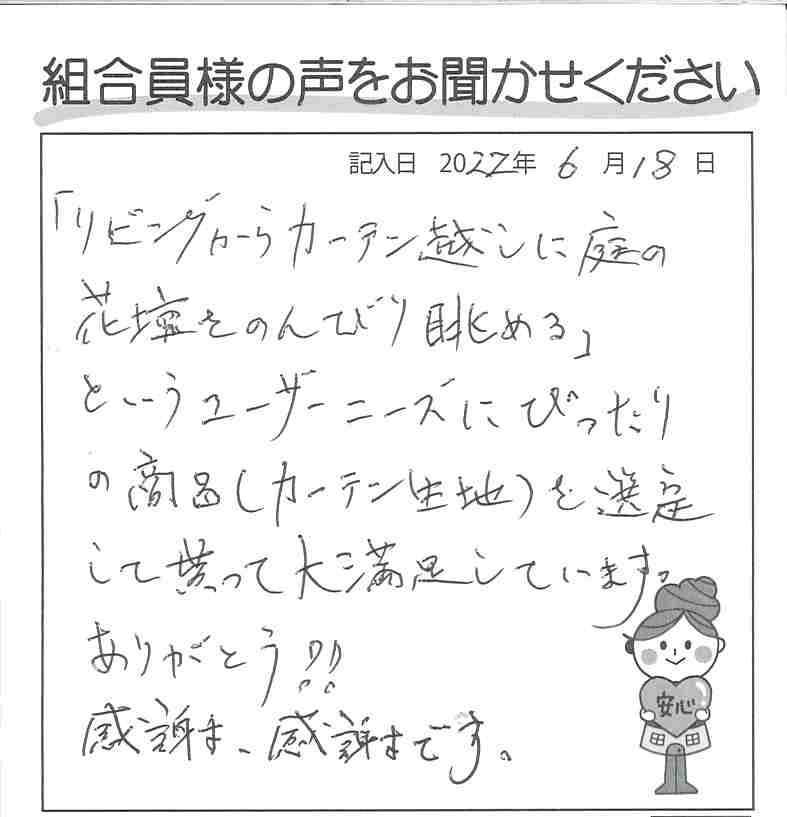 組合員様の声をお聞かせください
記入日 2022年 6月18日
「リビングからカーテン越しに庭の
花壇をのんびり眺める」
というユーザーニーズにぴったり
の商品(カーテン生地)を選定
して貰って大満足しています。
ありがとう!!
感謝、感謝です。
安心